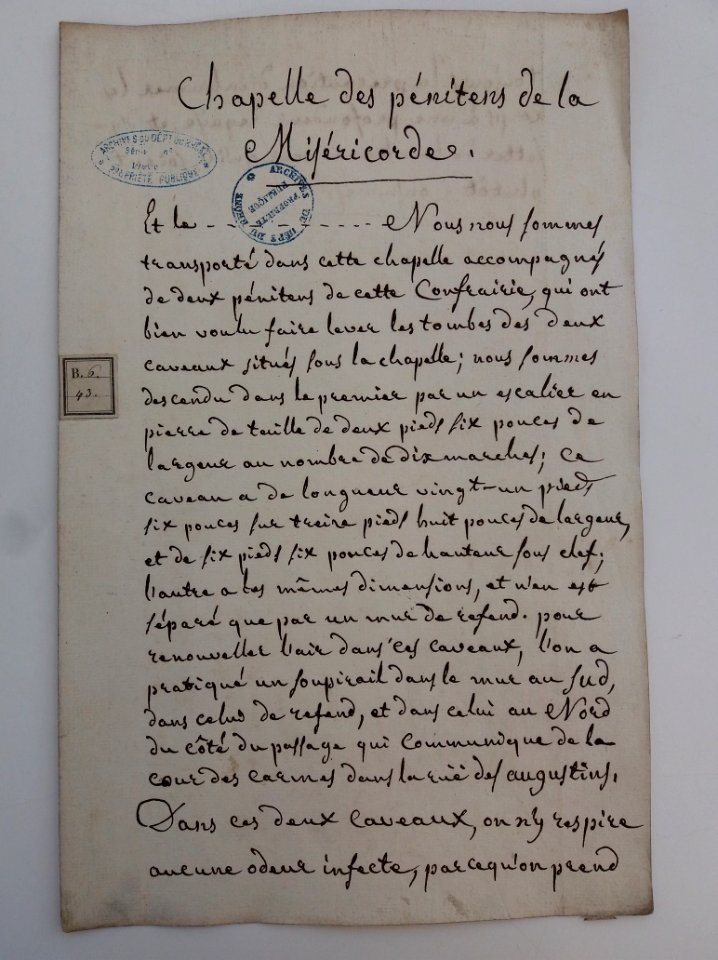 Chapelle des pénitens de la
Miséricorde.
ARCHIVES DU DÉPT DU RHÔNE
PROPRIÉTÉ PUBLIQUE
ARCHIVES DU DÉPT DU RHÔNE
PROPRIÉTÉ PUBLIQUE
Et le - - - - - - - - - - - - Nous nous sommes
transporté dans cette chapelle accompagnés
de deux pénitens de cette Confrairie, qui ont
bien voulu faire lever les tombes des deux
caveaux situés sous la chapelle; nous sommes
descendu dans le premier par un escalier en
pierre de taille de deux pieds six pouces de
largeur au nombre de dix marches; ce
B. 6.
43.
caveau a de longueur vingt-un pieds
six pouces sur treize pieds huit pouces de largeur,
et de six pieds six pouces de hauteur sous clef;
l'autre a les mêmes dimensions, et n'en est
séparé que par un mur de refend. pour
renouveller l'air dans ces caveaux, l'on a
pratiqué un soupirail dans le mur au sud,
dans celui de refend, et dans celui au Nord
du côté du passage qui communique de la
cour des carmes dans la ruë des augustins.
Dans ces deux caveaux, on n'y respire
aucune odeur infecte, parcequ'on prend